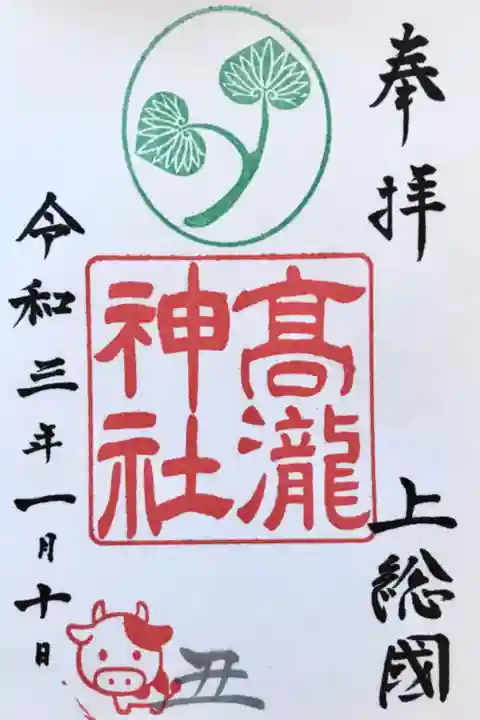 奉拝
上総國
髙瀧
神社
令和三年一月十日
丑